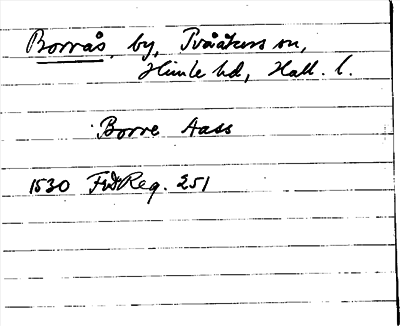 Borrås, by, Tvååkers sn,
Himle hd, Hall. l.
Borre Aass
1530 FrdReg. 251